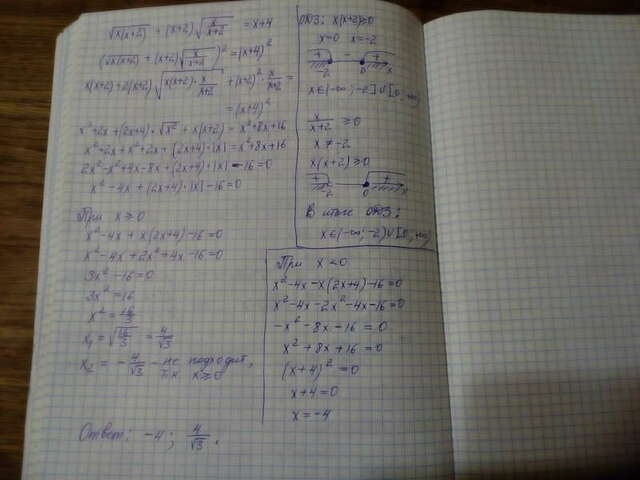 √x(x+2) + (x+2)√x/x+2 = x+4
(√x(x+2) + (x+2)√x/x+2)² = (x+4)²
x(x+2)+2(x+2)√x(x+2)·x/x+2 + (x+2)²·x/x+2 =
= (x+4)²
x²+2x+(2x+4)·√x² + x(x+2) = x²+8x+16
x²+2x+x²+2x+(2x+4)·|x| = x²+8x+16
2x²-x²+4x-8x+(2x+4)·|x| -16=0
x²-4x+(2x+4)·|x|-16=0
При x≥0
x²-4x+x(2x+4)-16=0
x²-4x+2x²+4x-16=0
3x²-16=0
3x²=16
x²=16/3
x₁=√16/3 = 4/√3
x₂ = -4/√3 - не подходит,
т.к x≥0
Ответ: -4; 4/√3.
ОДЗ: x(x+2)≥0
x=0 x=-2
+ - +
-2 0 x
x∈(-∞;-2]∪[0;+∞)
x/x+2 ≥0
x≠-2
x(x+2)≥0
+ - +
-2 0 x
В итоге ОДЗ:
x∈(-∞;-2)∪[0;+∞)
При x<0
x²-4x-x(2x+4)-16=0
x²-4x-2x²-4x-16=0
-x²-8x-16=0
x²+8x+16=0
(x+4)²=0
x+4=0
x=-4